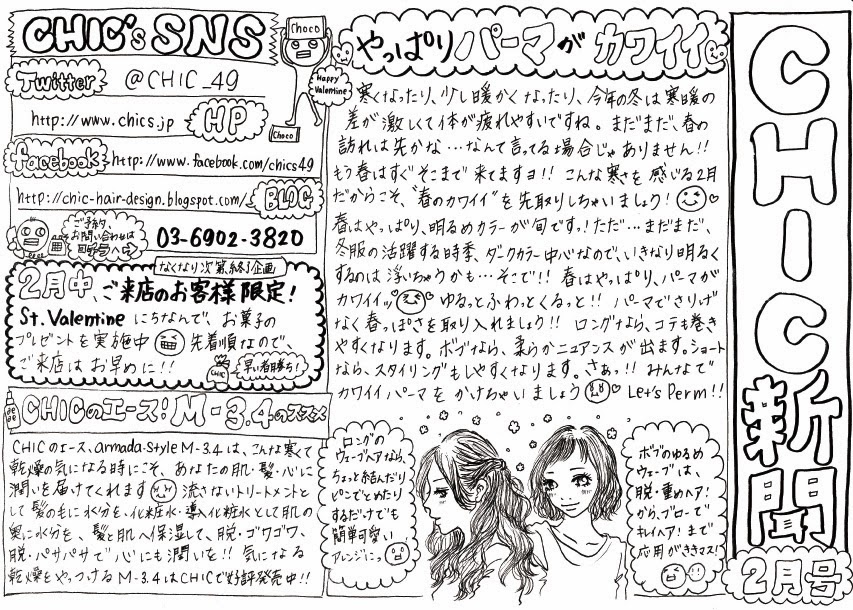 CHIC新聞
2月号
やっぱりパーマがカワイイ
寒くなったり、少し暖かくなったり、今年の冬は寒暖の
差が激しくて体が疲れやすいですね。まだまだ、春の
訪れは先かな…なんて言ってる場合じゃありません!!
もう春はすぐそこまで来てますョ!!こんな寒さを感じる2月
だからこそ、"春のカワイイ"を先取りしちゃいましょう!
春はやっぱり、明るめカラーが旬ですッ!ただ…まだまだ、
冬服の活躍する時季、ダークカラー中心なので、いきなり明るく
するのは浮いちゃうかも…そこで!!春はやっぱり、パーマが
カワイイッ ゆるっとふわっとくるっと!!パーマでさりげ
なく春っぽさを取り入れましょう!!ロングなら、コテも巻き
やすくなります。ボブなら、柔らかニュアンスが出ます。ショート
なら、スタイリングもしやすくなります。さぁっ!!みんなで
カワイイパーマをかけちゃいましょう Let's Perm!!
ロングの
ウェーブヘアなら、
ちょっと結んだり
ピンでとめたり
するだけでも
簡単可愛い
アレンジにっ
ボブのゆるめ
ウェーブは、
脱・重めヘア!
から、ブローで
キレイヘア!まで
応用がききマス!
CHIC's SNS
Choco
Happy
Valentine
Choco
Twitter @CHIC_49
http://www.chics.jp HP
facebook http://www.facebook.com/chics49
http://chic-hair-design.blogspot.com/ BLOG
ご予約、
お問い合わせは
コチラへ
03-6902-3820
なくなり次第、終了企画
2月中、ご来店のお客様限定!
St.Valentineにちなんで、お菓子の
プレゼントを実施中 先着順なので、
ご来店はお早めに!!
chic
早い者勝ち!
CHICのエース!M-3.4のススメ
CHICのエース、armada-style M-3.4は、こんな寒くて
乾燥の気になる時にこそ、あなたの肌・髪・心に
潤いを届けてくれます 流さないトリートメントと
して髪の毛に水分を、化粧水・導入化粧水として肌の
奥に水分を、髪と肌へ保湿して、脱・ゴワゴワ、
脱・パサパサで心にも潤いを!!気になる
乾燥をやっつけるM-3.4はCHICで好評発売中!!